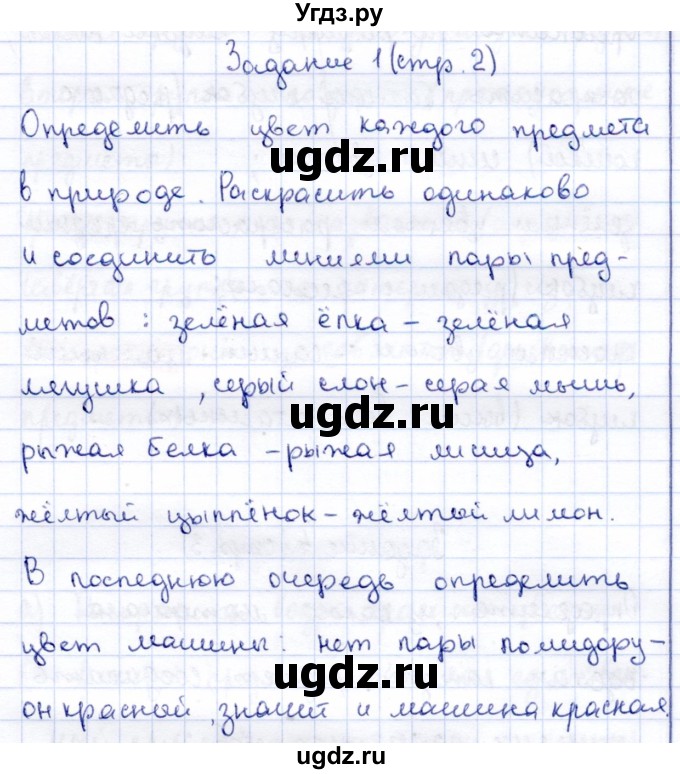 Угдз.ру
Задание 1 (стр. 2)
Определить цвет каждого предмета
ugdz.ru
в природе. Раскрасить одинаково
и соединить линиями пары пред-
метов : зелёная ёлка – зелёная
лягушка , серый слон – серая мышь,
ugdz.ru
рыжая белка – рыжая лисица,
жёлтый цыплёнок – жёлтый лимон.
В последнюю очередь определить
цвет машины: нет пары помидору –
ugdz.ru
он красный , значит и машина красная.
ugdz.ru